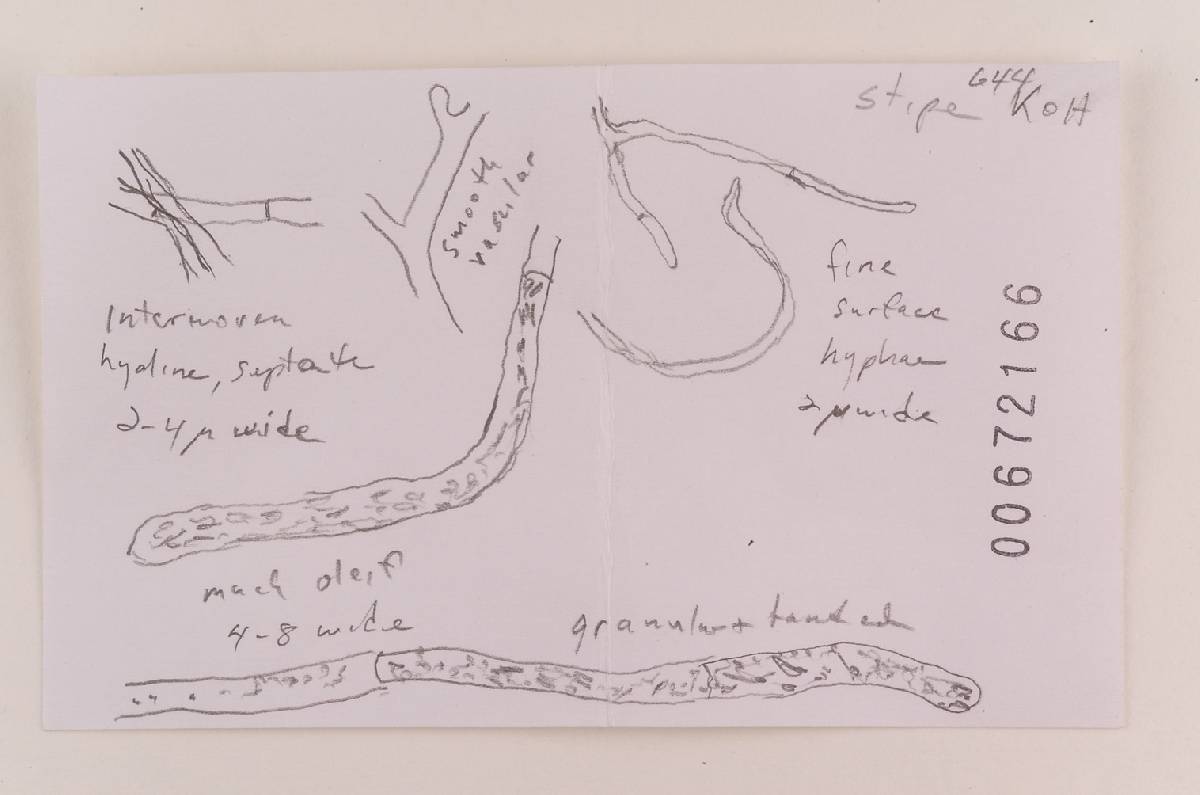 644
stipe KOH
smooth
vascular
Interwoven
hyaline, septate
2-4µ wide
fine
surface
hyphae
2µ wide
00672166
much oleif
4-8 wide
granular + banded